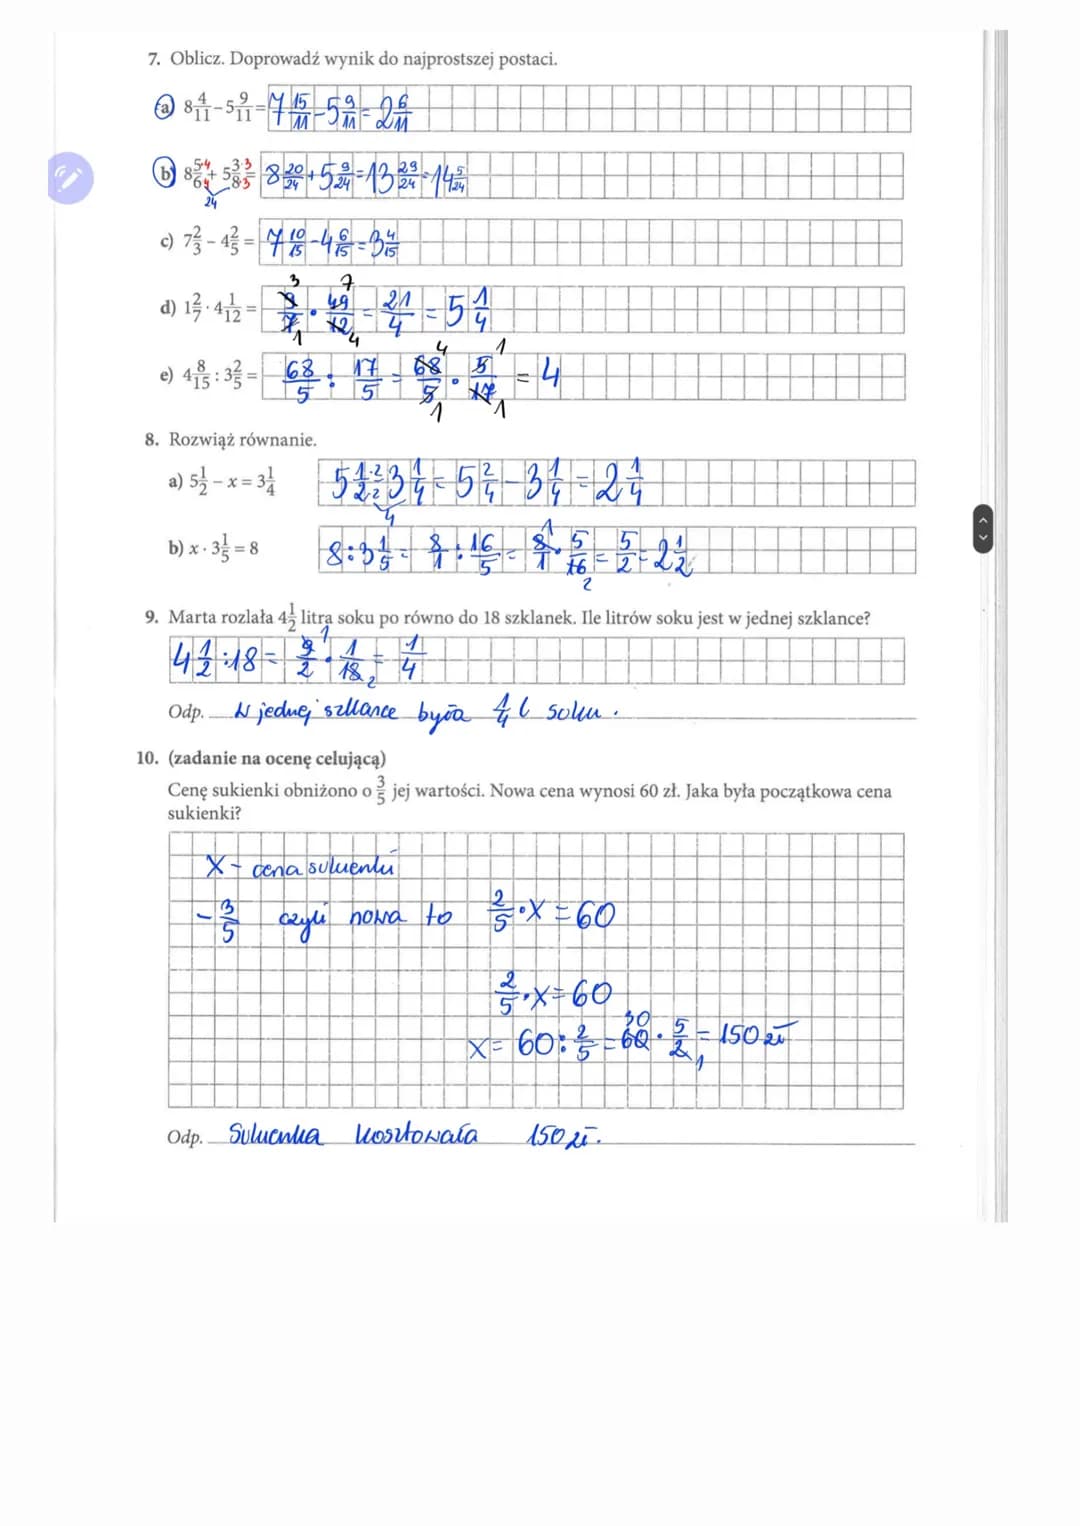 7. Oblicz. Doprowadź wynik do najprostszej postaci.
a) 8 4/11 - 5 9/11 = 7 15/11 - 5 9/11 = 2 6/11
b) 8 5·4/6·4 + 5 3·3/8·3 = 8 20/24 + 5 9/24 = 13 29/24 = 14 5/24
24
c) 7 2/3 - 4 2/5 = 7 10/15 - 4 6/15 = 3 4/15
3 7
d) 1 2/7 · 4 1/12 = 9/7 · 49/12 = 21/4 = 5 1/4
1 4
4 1
e) 4 8/15 : 3 2/5 = 68/5 : 17/5 = 68/5 · 5/17 = 4
1 1
8. Rozwiąż równanie.
a) 5 1/2 - x = 3 1/4 5 1·2/2·2 = 3 1/4 = 5 2/4 - 3 1/4 = 2 1/4
4
b) x · 3 1/5 = 8 8 : 3 1/5 = 8/1 : 16/5 = 8/1 · 5/16 = 5/2 = 2 1/2
1 2
9. Marta rozlała 4 1/2 litra soku po równo do 18 szklanek. Ile litrów soku jest w jednej szklance?
4 1/2 : 18 = 9/2 · 1/18 = 1/4
1 2
Odp. W jednej szklance była 1/4 l soku.
10. (zadanie na ocenę celującą)
Cenę sukienki obniżono o 3/5 jej wartości. Nowa cena wynosi 60 zł. Jaka była początkowa cena
sukienki?
X - cena sukienki
- 3/5 czyli nowa to 2/5 · X = 60
2/5 · X = 60
30
X = 60 : 2/5 = 60 · 5/2 = 150 zł
1
Odp. Sukienka kosztowała 150 zł.